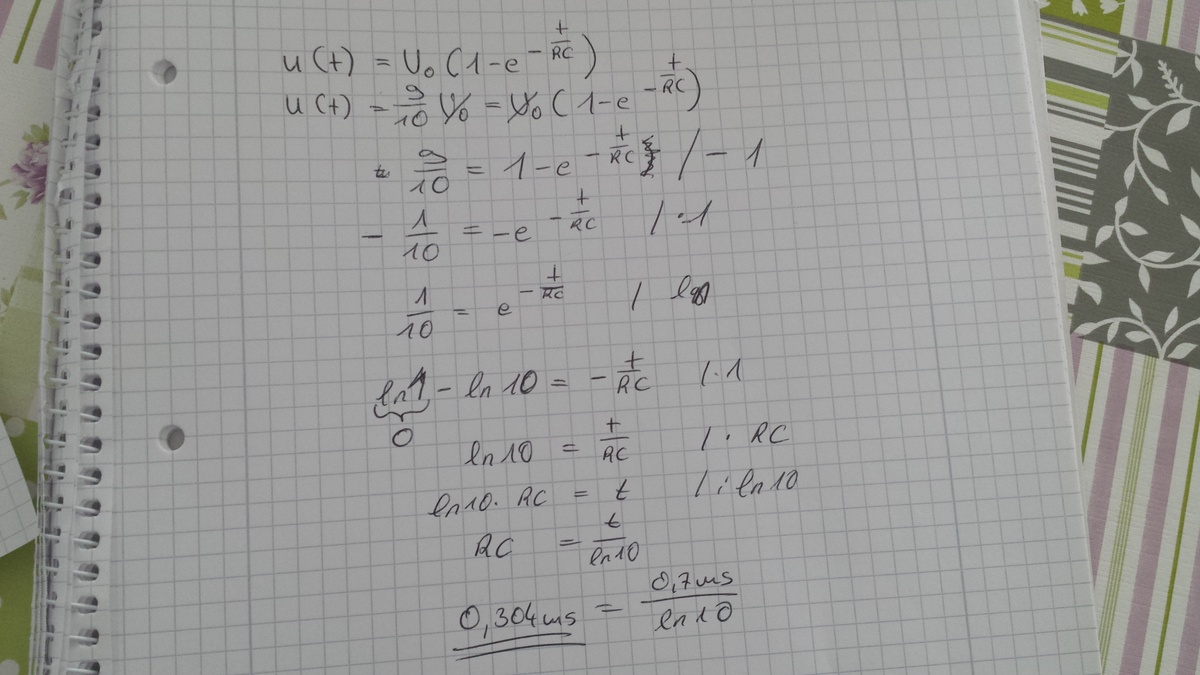 u(t) = U₀ (1-e^(-t/RC))
u(t) = 9/10 U₀ = U₀ (1-e^(-t/RC))
9/10 = 1-e^(-t/RC) / - 1
- 1/10 = -e^(-t/RC) / ·-1
1/10 = e^(-t/RC) /
ln1 - ln10 = - t/RC / ·1
0
ln10 = t/RC / · RC
ln10 · RC = t / : ln10
RC = t/ln10
0,304ms = 0,7ms/ln10